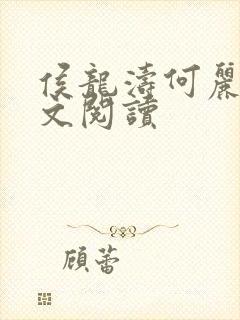 侯龍濤何麗
文閱讀
顧蕾